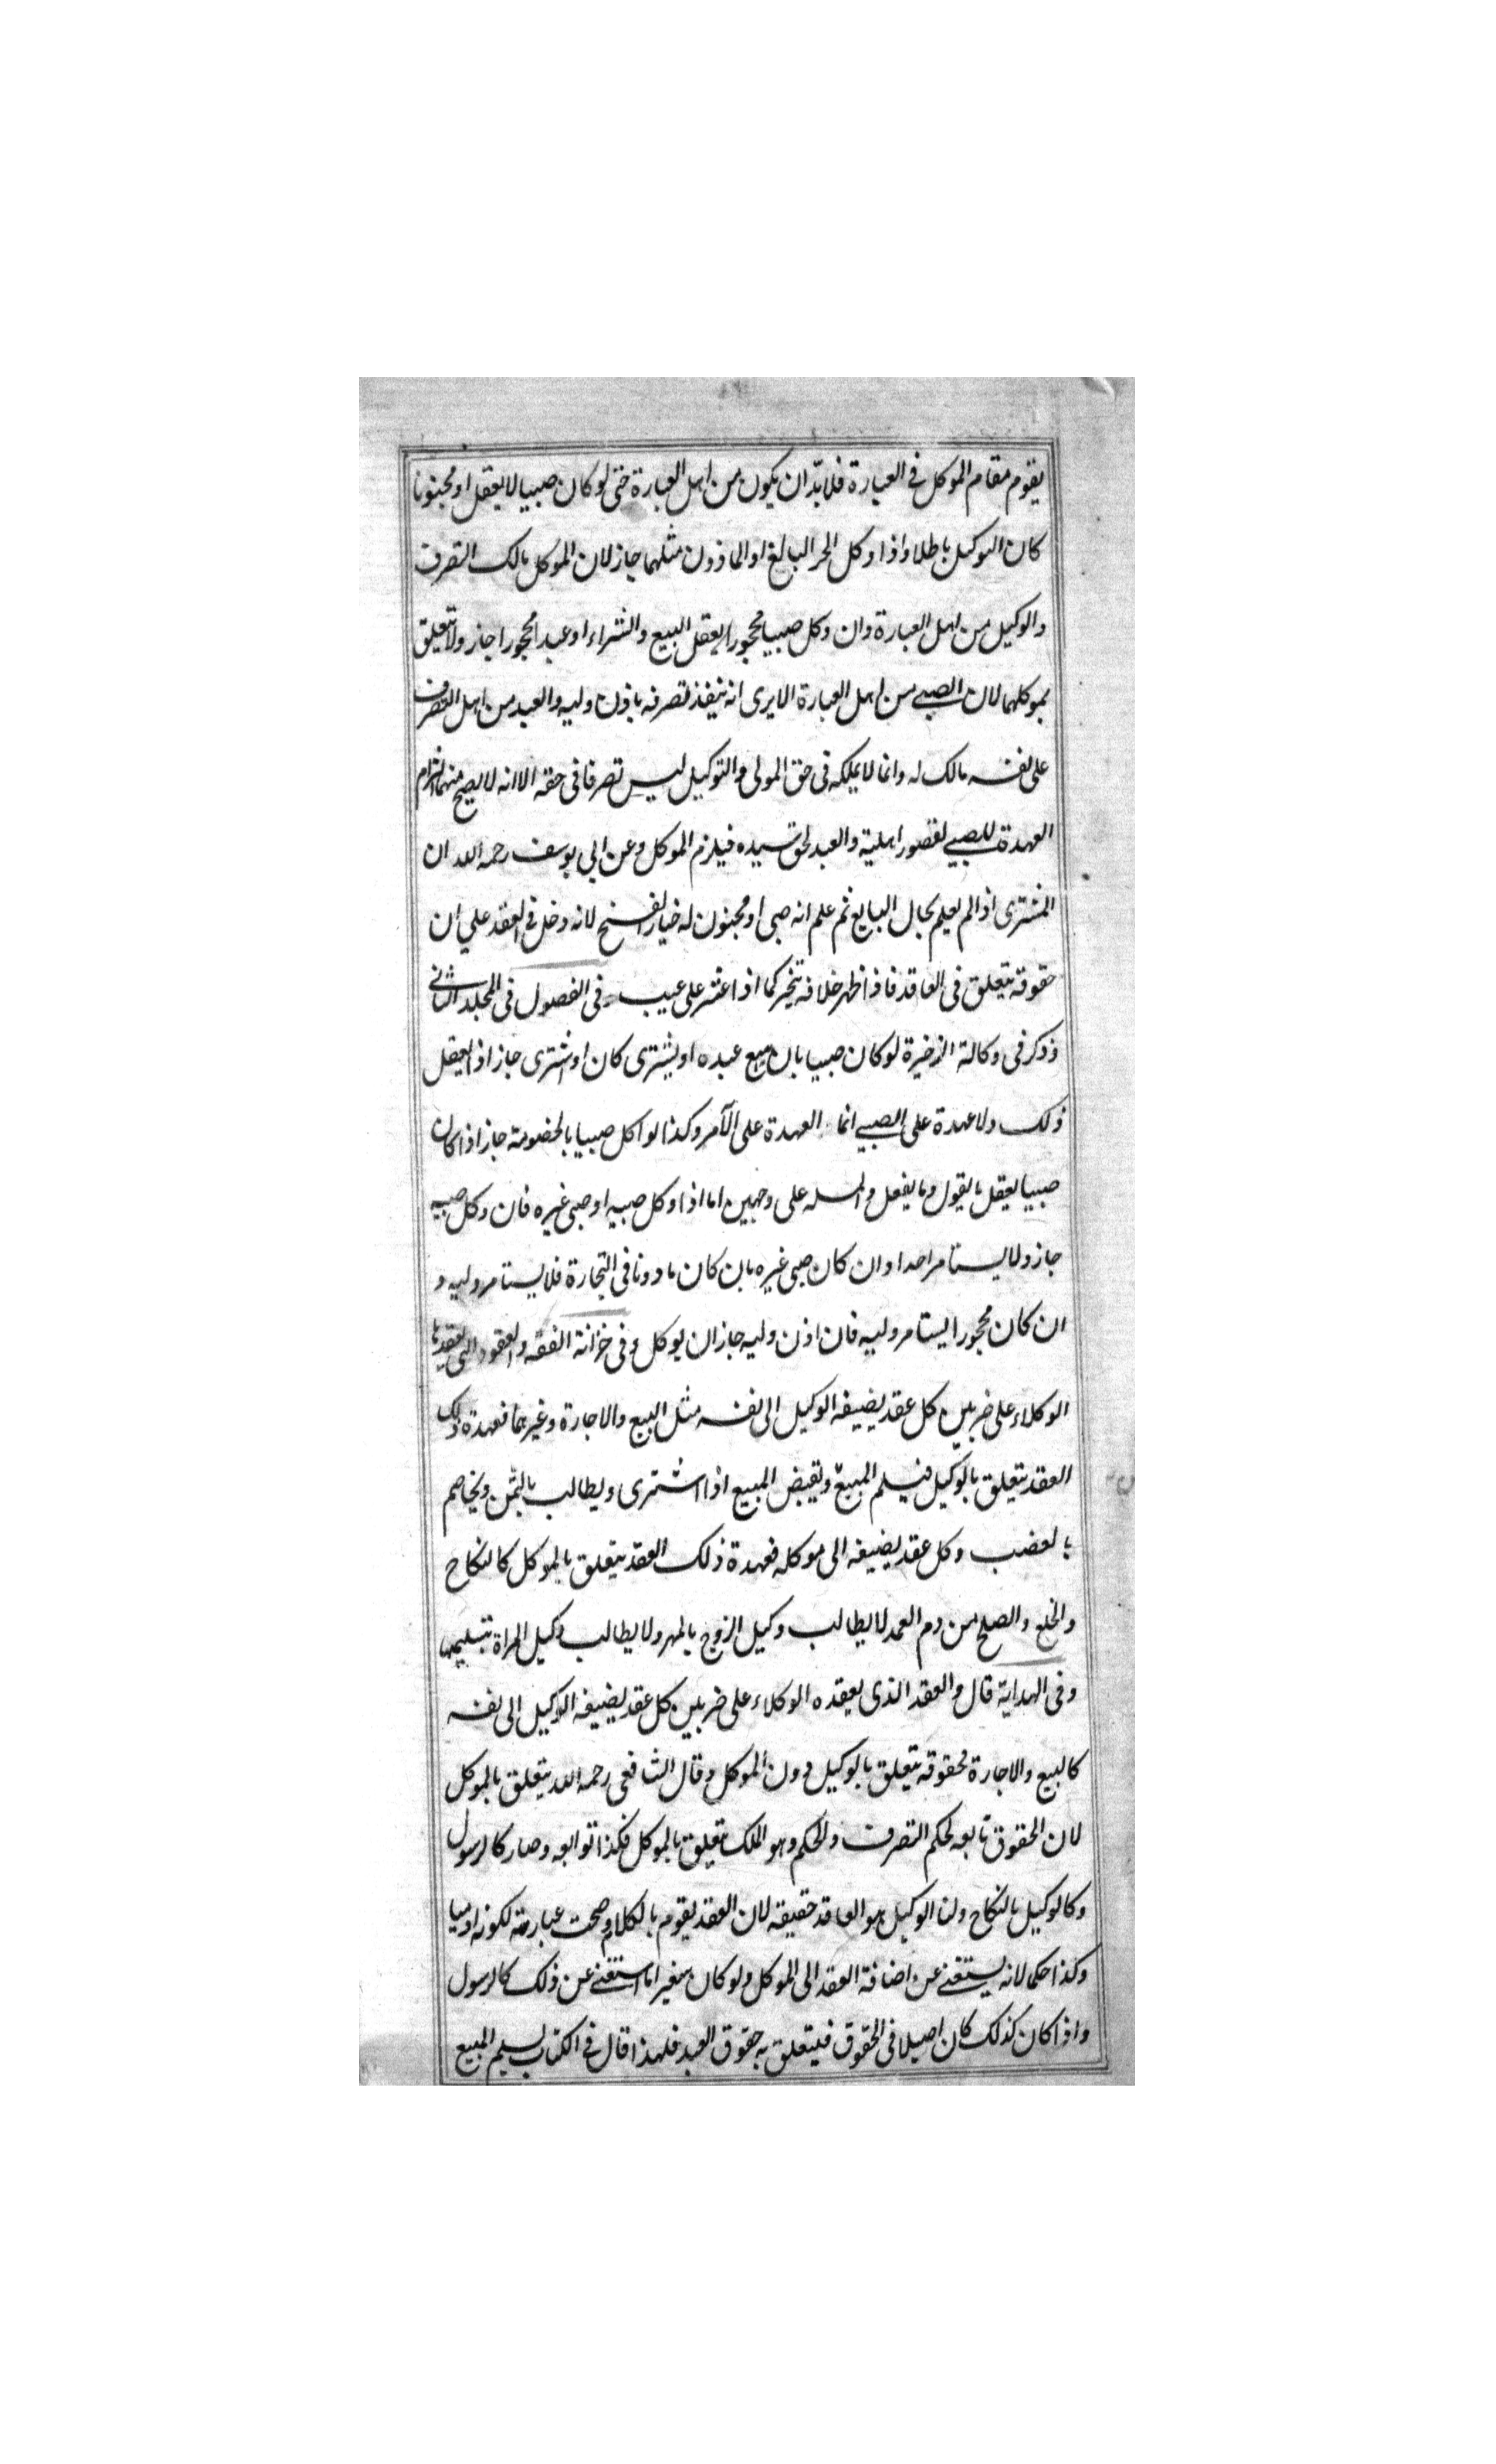 يقوم مقام الموكل فى العبارة فلابدّ ان يكون من اهل العبارة حتى لو كان صبيا لا يعقل او مجنونا
كان التوكيل باطلا واذا وكل الحر البالغ او الماذون مثلهما جاز لان الموكل مالك التصرف
والوكيل من اهل العبارة وان وكل صبيا محجورا يعقل البيع والشراء او عبدا محجورا جاز ولا يتعلق
بموكلهما لان الصبي من اهل العبارة الا يرى انه ينفذ تصرفه باذن وليه والعبد من اهل التصرف
على نفسه مالك له وانما لا يملكه فى حق المولى والتوكيل ليس تصرفا فى حقه الا انه لا يصح منهما التزام
العهدة للصبي لقصور اهلية والعبد لحق سيده فيلزم الموكل وعن ابي يوسف رحمه الله ان
المشترى اذا لم يعلم بحال البايع ثم علم انه صبى او مجنون له خيار الفسخ لانه دخل فى العقد علي ان
حقوقه يتعلق فى العاقد فاذا ظهر خلافه يتخير كما اذا عثر على عيب فى الفصول فى المجلد الثانى
وذكر فى وكالة الذخيرة لو كان صبيا بان يبيع عبده او يشترى كان اشترى جاز اذا يعقل
ذلك ولا عهدة على الصبي انما العهدة على الآمر وكذا لو اكل صبيا بالخصومة جاز اذا كان
صبيا يعقل ما يقول وما يفعل والمسله على وجهين اما اذا وكل صبيه او صبى غيره فان وكل صبيه
جاز ولا يستامر احدا وان كان صبى غيره بان كان ماذونا فى التجارة فلا يستامر وليه و
ان كان محجورا يستامر وليه فان اذن وليه جاز ان يوكل وفى خزانة الفقه والعقود التى يعقدها
الوكلاء على ضربين كل عقد يضيفه الوكيل الى نفسه مثل البيع والاجارة وغيرهما فعهدة ذلك
العقد يتعلق بالوكيل فيسلم المبيع ويقبض المبيع اذا اشترى ويطالب بالثمن ويخاصم
بالعضب وكل عقد يضيفه الى موكله فعهدة ذلك العقد يتعلق بالموكل كالنكاح
والخلع والصلح من دم العمد لا يطالب وكيل الزوج بالمهر ولا يطالب وكيل المراة بتسليمها
وفى الهداية قال والعقد الذى يعقده الوكلاء على ضربين كل عقد يضيفه الوكيل الى نفسه
كالبيع والاجارة فحقوقه يتعلق بالوكيل دون الموكل وقال الشافعى رحمه الله يتعلق بالموكل
لان الحقوق تابعه لحكم التصرف والحكم وهو الملك يتعلق بالموكل فكذا توابعه وصار كالرسول
وكالوكيل بالنكاح ولنا الوكيل هو العاقد حقيقه لان العقد يقوم بالكلام وصحت عبارته لكونه ادميا
وكذا حكما لانه يستغنى عن اضافة العقد الى الموكل ولو كان سفيرا ما استغنى عن ذلك كالرسول
واذا كان كذلك كان اصيلا فى الحقوق فيتعلق به حقوق العبد فلهذا قال فى الكتاب يسلم المبيع